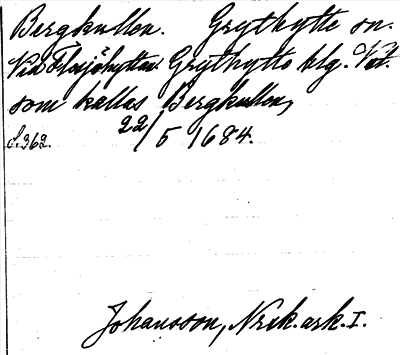 Bergkullen. Grythytte sn.
Vid Elfsjöhyttan Grythytte blg. Vst.
som kallas Bergkullen,
s. 362. 22/5 1684.
Johansson, Nrik. ark. I.